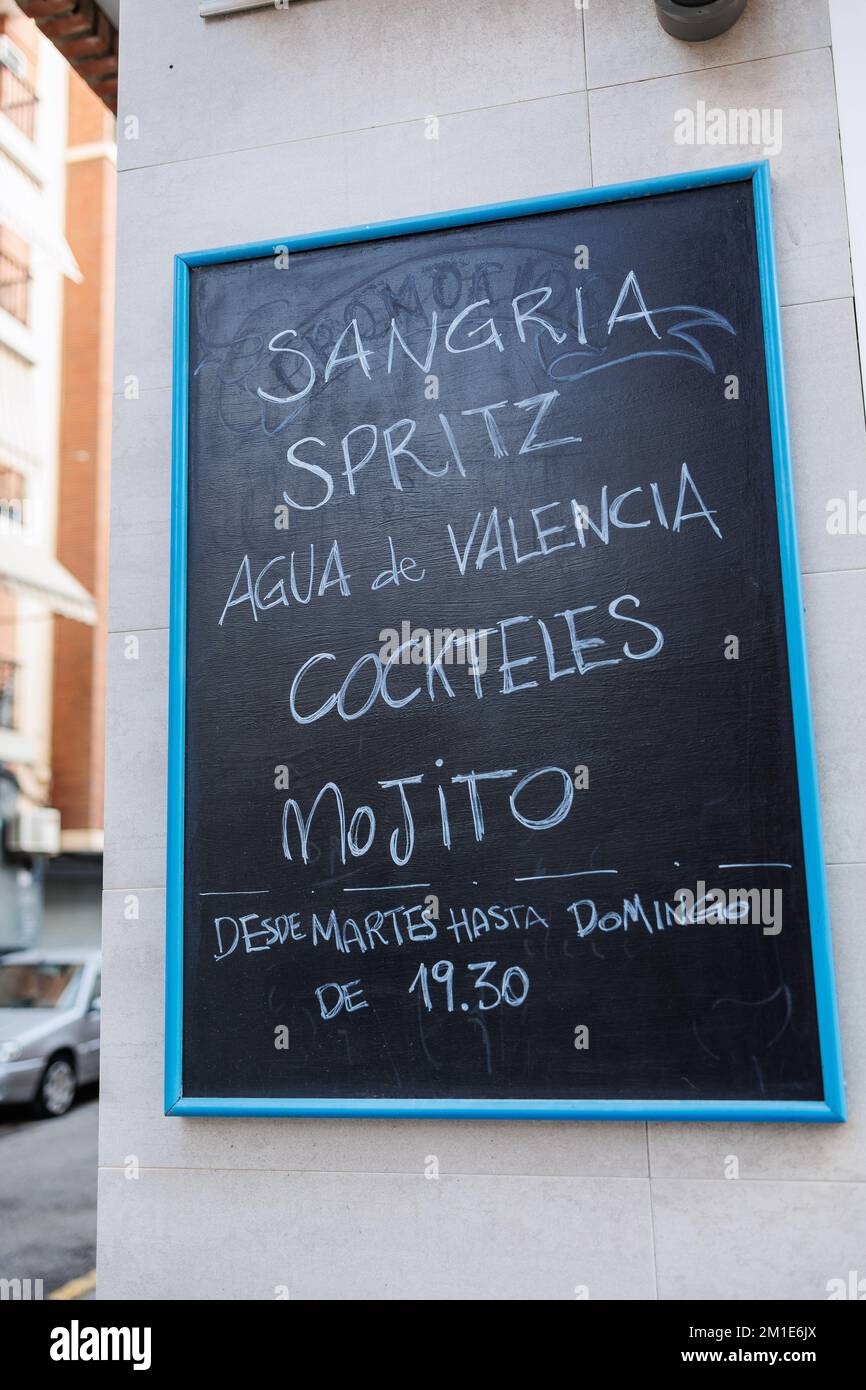 PROMOCION
SANGRIA
SPRITZ
AGUA de VALENCIA
COCKTELES
MOJITO
DESDE MARTES HASTA DOMINGO
DE 19.30
alamy
Image ID: 2M1E6JX
www.alamy.com